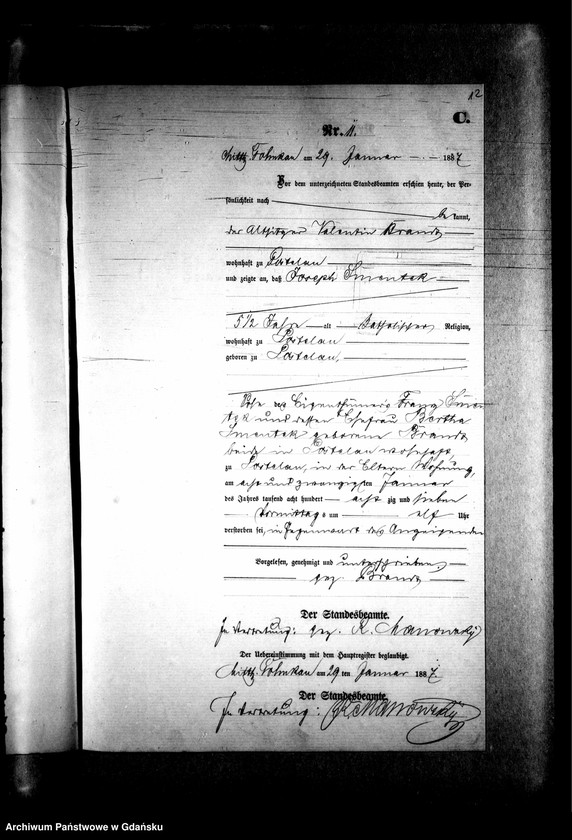 12
C.
Nr. 11.
am 29. Januar 1887
Vor dem unterzeichneten Standesbeamten erschien heute, der Per-
sönlichkeit nach
bekannt,
der Altsitzer Valentin Brandt
wohnhaft zu
und zeigte an, daß Joseph
5 1/2 Jahre alt katholischer Religion,
wohnhaft zu
geboren zu
Sohn des Eigenthümers Franz
und dessen Ehefrau Bertha
geborene Brandt
beide in wohnhaft,
zu in der Eltern Wohnung,
am acht und zwanzigsten Januar
des Jahres tausend acht hundert acht zig und sieben
Vormittags um elf Uhr
verstorben sei, in Gegenwart des Anzeigenden
Vorgelesen, genehmigt und unterschrieben
gez. Brandt
Der Standesbeamte.
In Vertretung: gez. R. Manowsky
Der Uebereinstimmung mit dem Hauptregister beglaubigt.
am 29 ten Januar 1887.
Der Standesbeamte.
In Vertretung: R. Manowsky
Archiwum Państwowe w Gdańsku